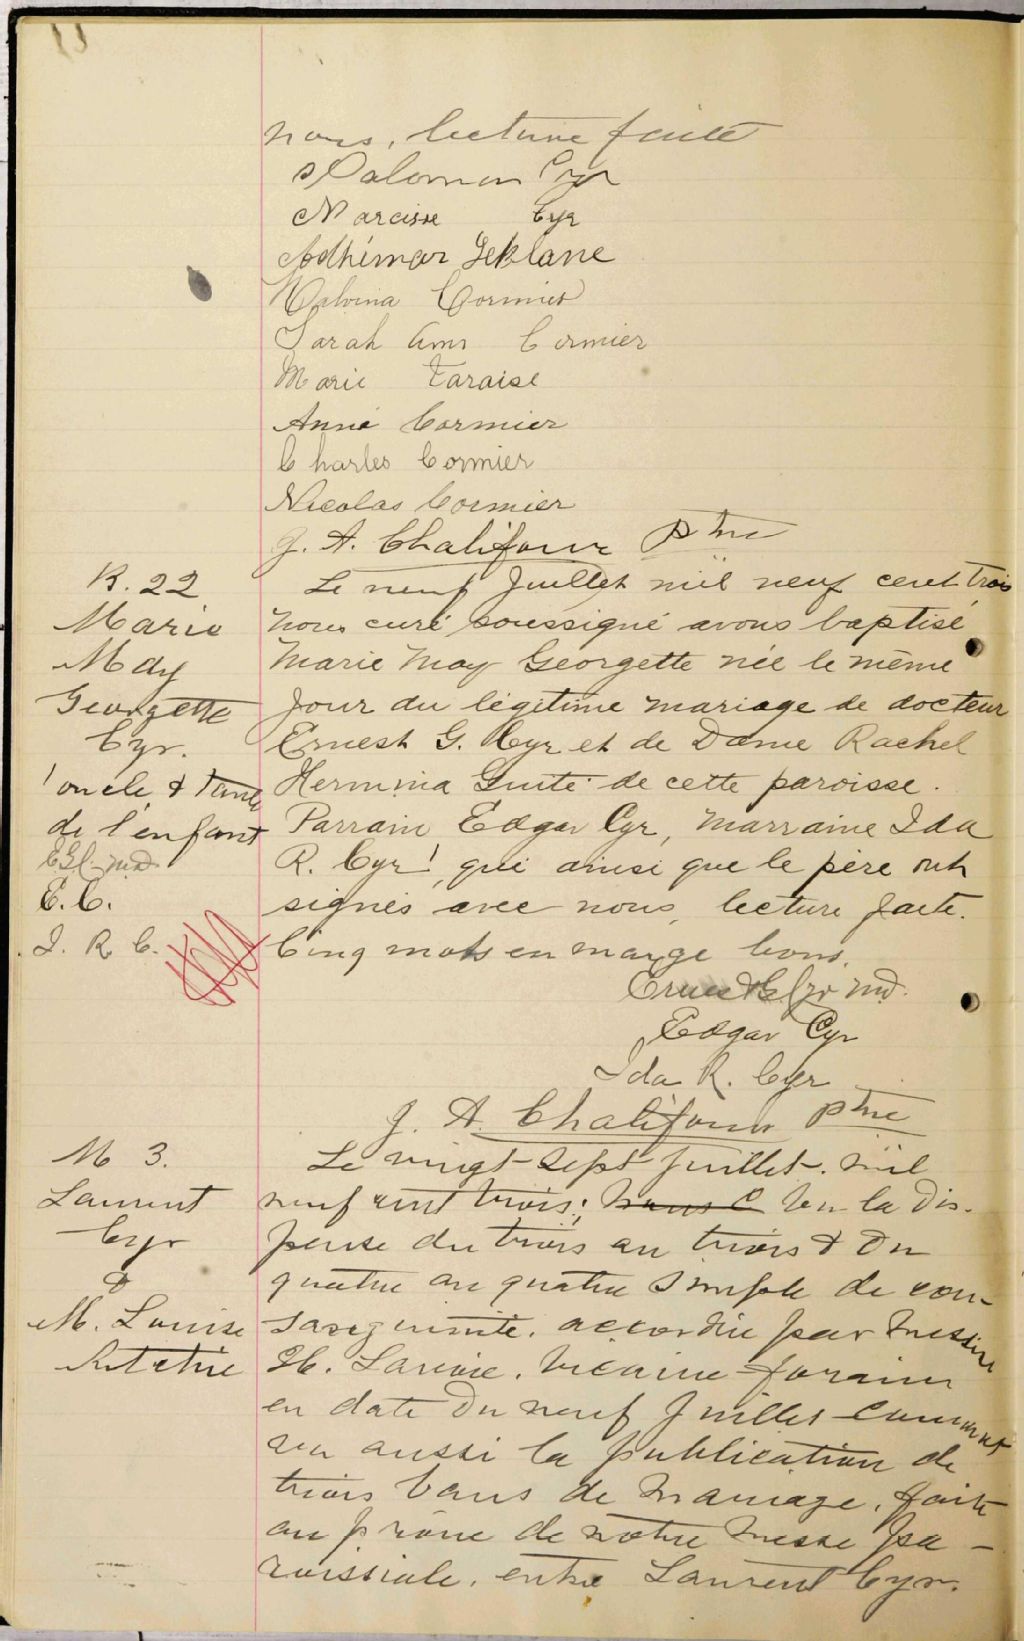 nous, lecture faite
Salomon Cyr
Narcisse Cyr
Adhémar LeBlanc
Malvina Cormier
Sarah Ann Cormier
Marie
Annie Cormier
Charles Cormier
Nicolas Cormier
J. A. Chalifour Ptre
B. 22
Marie
May
Georgette
Cyr.
! oncle & tante
de l'enfant
E.G.C. m.d.
E. C.
I. R. C.
Le neuf Juillet mil neuf cent trois
nous curé soussigné avons baptisé
Marie May Georgette née le même
jour du légitime mariage de docteur
Ernest G. Cyr et de Dame Rachel
Hermina Guité de cette paroisse.
Parrain Edgar Cyr, marraine Ida
R. Cyr!, qui ainsi que le père ont
signés avec nous, lecture faite.
Cinq mots en marge bons.
Ernest G. Cyr m.d.
Edgar Cyr
Ida R. Cyr
J. A. Chalifour Ptre
M 3.
Laurent
Cyr
&
M. Louise
Ritchie
Le vingt-sept juillet. mil
neuf cent trois; nous c Vu la dis-
pense du trois au trois & du
quatre au quatre simple de con-
sanguinité. accordée par Messire
Vicaire forain
en date du neuf Juillet courant
vu aussi la publication de
trois bans de mariage, faite
au prône de notre messe pa-
roissiale, entre Laurent Cyr.